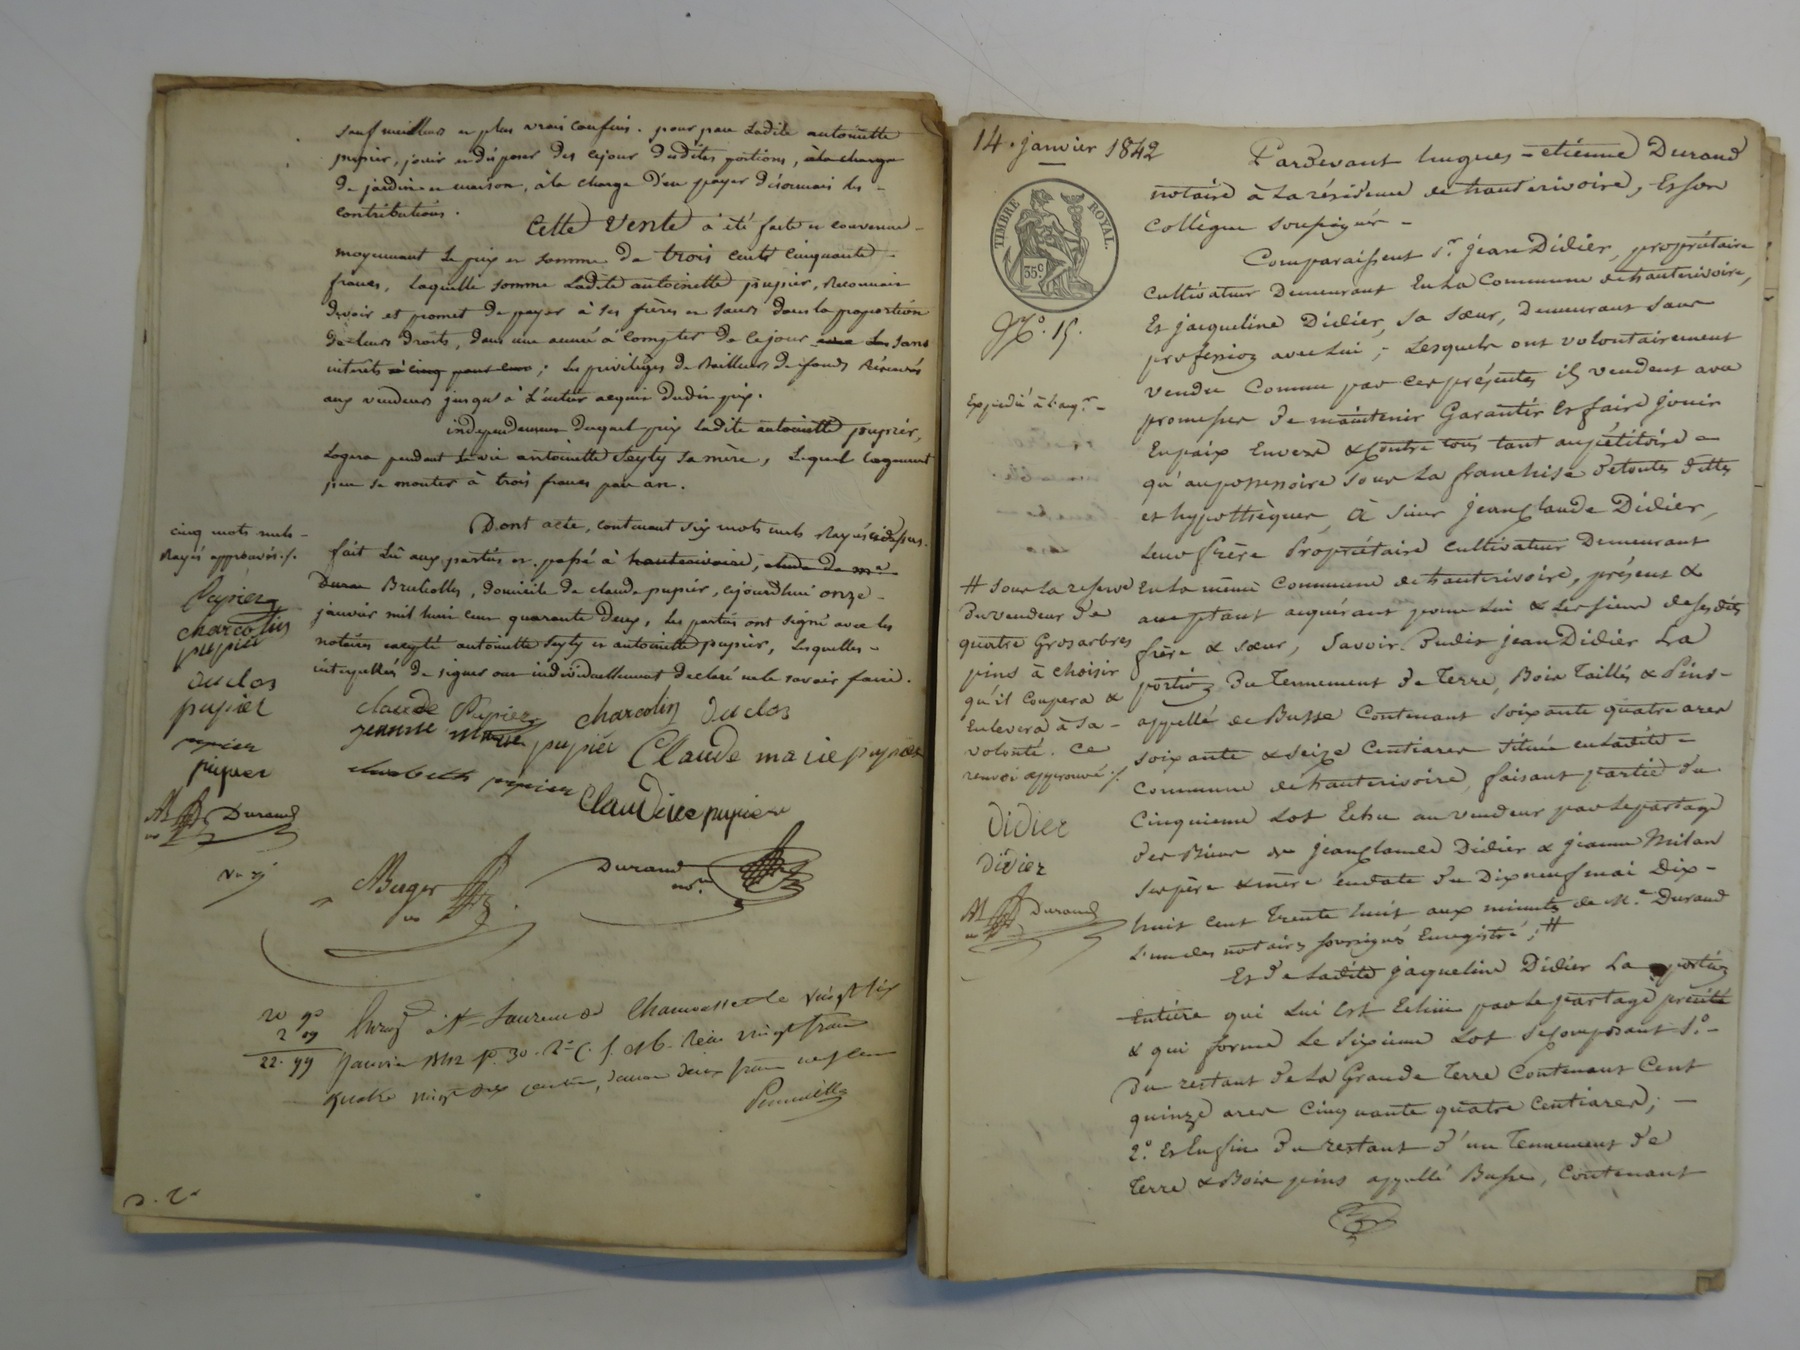 sauf meilleurs et plus vrais confins. pour par Ladite antoinette
pupier, jouir et disposer dès cejour desdites portions, àla charge
de jardin et maison, àla charge d'en payer désormais les
contributions.
Cette Vente a été faite et convenue
moyennant le prix et somme de trois cents cinquante
francs, laquelle somme Ladite antoinette pupier, Reconnait
devoir et promet de payer à ses frères et sœurs dans la proportion
de leurs droits, dans une année à compter de cejour sans
intérêts à cinq pour cent; les privilèges de Bailleurs de fonds Réservés
aux vendeurs jusqu'à l'entier acquit dudit prix.
independamment duquel prix Ladite antoinette pupier,
Logera pendant sa vie antoinette Seyty sa mère, Lequel Logement
peu se monter à trois francs par an.
Dont acte, contenant six mots nuls Rayés cidessus.
fait Lu aux parties et passé à hauterivoire, étude de me
Duran Brulolles, domicile de claude pupier, cejourd'hui onze
janvier mil huit cent quarante Deux, les parties ont signé avec les
notaires excepté antoinette Seyty et antoinette pupier, Lesquelles
interpellés de signer ont individuellement declaré ne le savoir faire.
cinq mots nuls
Rayés approuvés ./.
Pupier
charcotin
pupier
duclos
pupier
pupier
pupier
Durand
claude Pupier charcotin duclos
jeanne marie pupier Claude marie pupier
elisabeth pupier
Claudine pupier
Berger
Durand
not.re
20 90
2 09
22. 99
Enreg. à St Laurent de Chamousset le vingt six
janvier 1842 fo. 30. Ro C. 5. et 6. Reçu vingt francs
quatre vingt dix centimes, décime deux francs neuf cent
14. janvier 1842
TIMBRE ROYAL.
35.c
No. 15.
Expédié à l'aqr.
Pardevant hugues = etienne Durand
notaire à La résidence de hauterivoire, Et son
Collègue soussignés
Comparaissent Sr. jean Didier, propriétaire
Cultivateur Demeurant En La Commune de hauterivoire,
Et jacqueline Didier, sa sœur, Demeurant sans
profession avec Lui; Lesquels ont volontairement
vendu Comme par ces présentes ils vendent avec
promesse de maintenir Garantir Et faire jouir
En paix Envers & Contre tous tant au pétitoire
qu'au possessoire sous La franchise de toutes dettes
et hypothèques, à sieur jean Claude Didier,
Leur frère Propriétaire Cultivateur Demeurant
En la même Commune de hauterivoire, présent &
acceptant acquérant pour Lui & Les siens de ses dits
frère & sœur, Savoir. Dudit jean Didier La
portion Du Tennement De Terre, Bois Taillés & Pins
appellé de Busse Contenant soixante quatre ares
soixante & seize Centiares située en Ladite
Commune de hauterivoire, faisant partie du
Cinquieme Lot Echu au vendeur par Le partage
des Biens de jean Claude Didier & jeanne Milan
ses père & mère en date du Dix neuf mai Dix-
huit cent Trente huit aux minutes de Me Durand
L'un des notaires soussignés Enregistré; #
Et de Ladite jaqueline Didier La portion
Entière qui Lui Est Echue par Le partage précité
& qui forme Le Sixieme Lot se composant 1.o
Du restant de La Grande Terre Contenant Cent
quinze ares Cinquante quatre Centiares;
2.o Et Enfin Du restant d'un Tennement De
Terre & Bois pins appellé Busse, Contenant
# Sous La reserve
Du vendeur de
quatre Gros arbres
pins à choisir
qu'il Coupera &
Enlevera à Sa
volonté. Ce
renvoi approuvé ./.
Didier
Didier
Durand